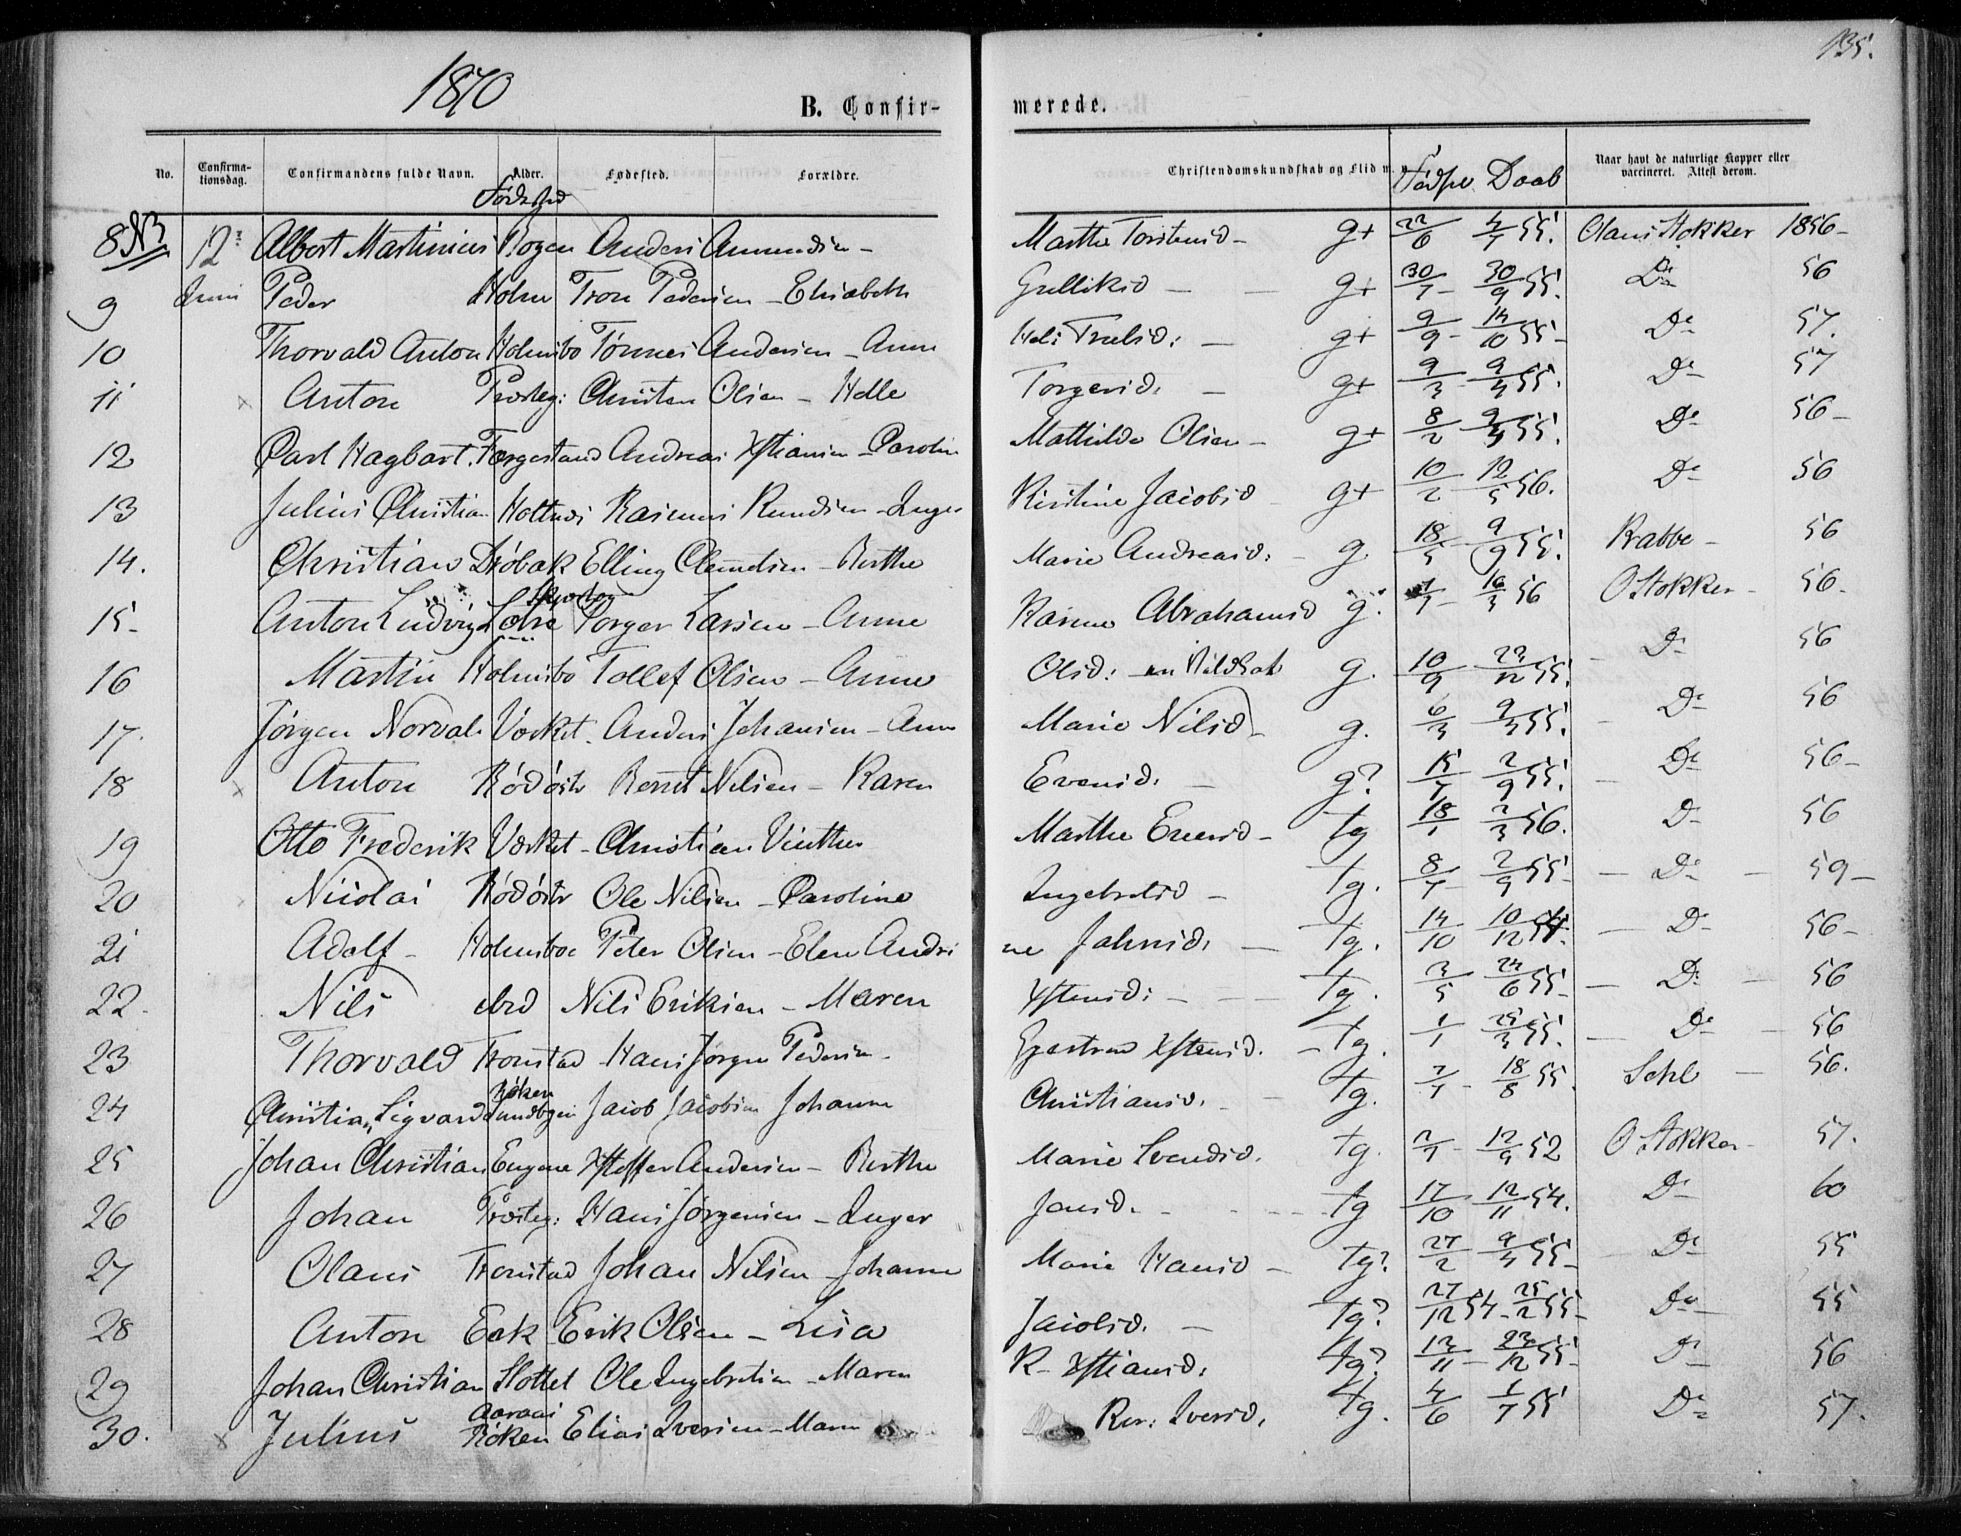 1870
135.
B. Confir-
merede.
No. Confirma-tionsdag. Confirmandens fulde Navn. Alder. Fødested. Forældre. Christendomskundskab og Flid m. Fødsel Daab Naar havt de naturlige Kopper eller vaccineret. Attest derom.
Fødested
8 12 Albert Martinius Bogen Anders Amundsen - Marthe Torstensd - g+ 22/6 55. Olaus Stokker 1856-
9 Juni Peder Holm Tron Pedersen - Elisabeth Gulliksd - g+ 30/7 - 30/9 55. Do 56
10 Thorvald Anton Holmsbo Tønnes Andersen - Anne Hel: Truelsd: - g+ 9/9 - 14/10 55 - Do 57.
11 Anton Præsteg: Christen Olsen - Helle Torgersd. - g+ 9/3 - 9/4 55. Do 57
12 Carl Hagbart. Færgestad Andreas Xstiansen - Caroline Mathilde Olsen - g+ 8/2 - 9/4 55. Do 56-
13 Julius Christian Holtnæs Rasmus Knudsen - Inger Kirstine Jacobsd g+ 10/2 - 12/5 56. Do 56
14. Christian Drøbak Elling Clemedsen - Berthe Marie Andreasd: - g. 18/5 - 9/9 55. Rabbe - 56
15 - Anton Ludvig Torger Larsen - Anne Karine Abrahamsd g. 16/3 56 O Stokker - 56.
16 Martin Holmsbo Tollef Olsen - Anne Olsd: - g. 10/9 55. Do 56
17. Jørgen Norval Værket. Anders Johansen - Anne Marie Nilsd - g. 6/3 - 9/4 55. Do 56
18 Anton Rødøstr Bernt Nilsen - Karen Evensd. - g? 15/7 - 2/9 55. Do 56-
19 Otto Frederik Værket - Christian Vinther Marthe Evensd - tg 18/1 - 2/3 56. Do 56
20 Nicolai Rødøstr Ole Nilsen - Caroline Ingebretsd - tg. 8/7 - 2/9 55 - Do - 59-
21 Adolf - Holmsboe Peter Olsen - Elen Andri ne Jahnsd. - tg. 14/10 - 10/12 54. - Do - 56-
22. Nils Nils Eriksen - Maren Xstensd: - tg. 3/5 - 24/6 55 - Do - 56
23 Thorvald Tronstad Hans Jørgen Pedersen - Xstensd. - tg. 1/1 - 25/3 55. - Do - 56
24 Christian Sigvard Røken Jacob Jacobsen Johanne Christiansd. - tg. 7/7 - 18/8 55. Schl - 56.
25 Johan Christian Engene Xstoffer Andersen - Berthe Marie Svendsd. tg. 12/9 52 O Stokker - 57.
26 Johan Præsteg: Hans Jørgensen - Inger Jensd. - tg 17/10 - 12/11 54. Do - 60
27 Olaus Tronstad Johan Nilsen - Johanne Marie Hansd - tg? 27/2 - 9/4 55 - Do 55
28 Anton Eek Erik Olsen - Lisa Jacobsd. - tg? 27/12 54 - 25/2 55 - Do - 55
29 Johan Christian Slottet Ole Ingebretsen - Maren K - Xstiansd. tg? 12/11 - 23/12 55 - Do 56
30. Julius Røken Elias Iversen - Maren Iversd. tg. 4/6 1/7 55 Do 57.